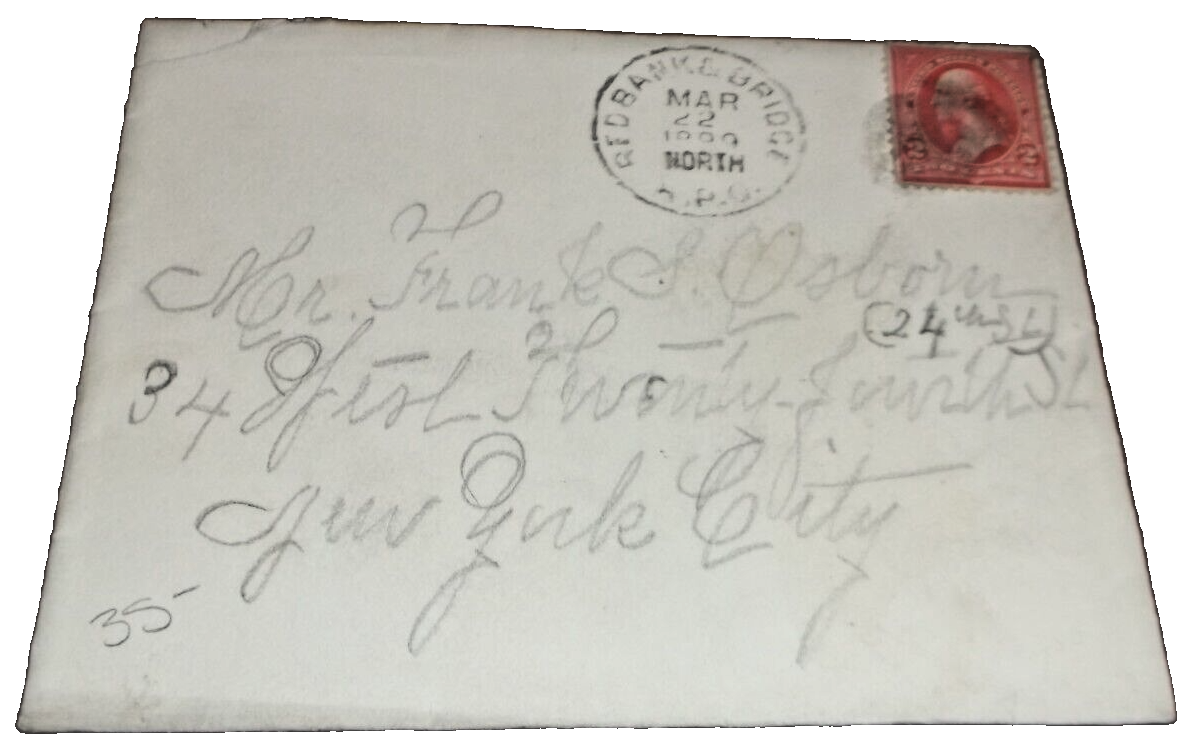 RED BANK & BRIDGE
MAR
22
NORTH
R.P.O.
2 2
Mr. Frank S. Osborn
(24th St.)
34 West Twenty-fourth St
New York City
35-